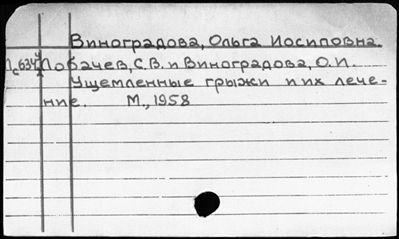 Виноградова, Ольга Иосиповна.
Лобачев, С.В. и Виноградова, О.И.
Ущемленные грыжи и их лече-
ние. М., 1958